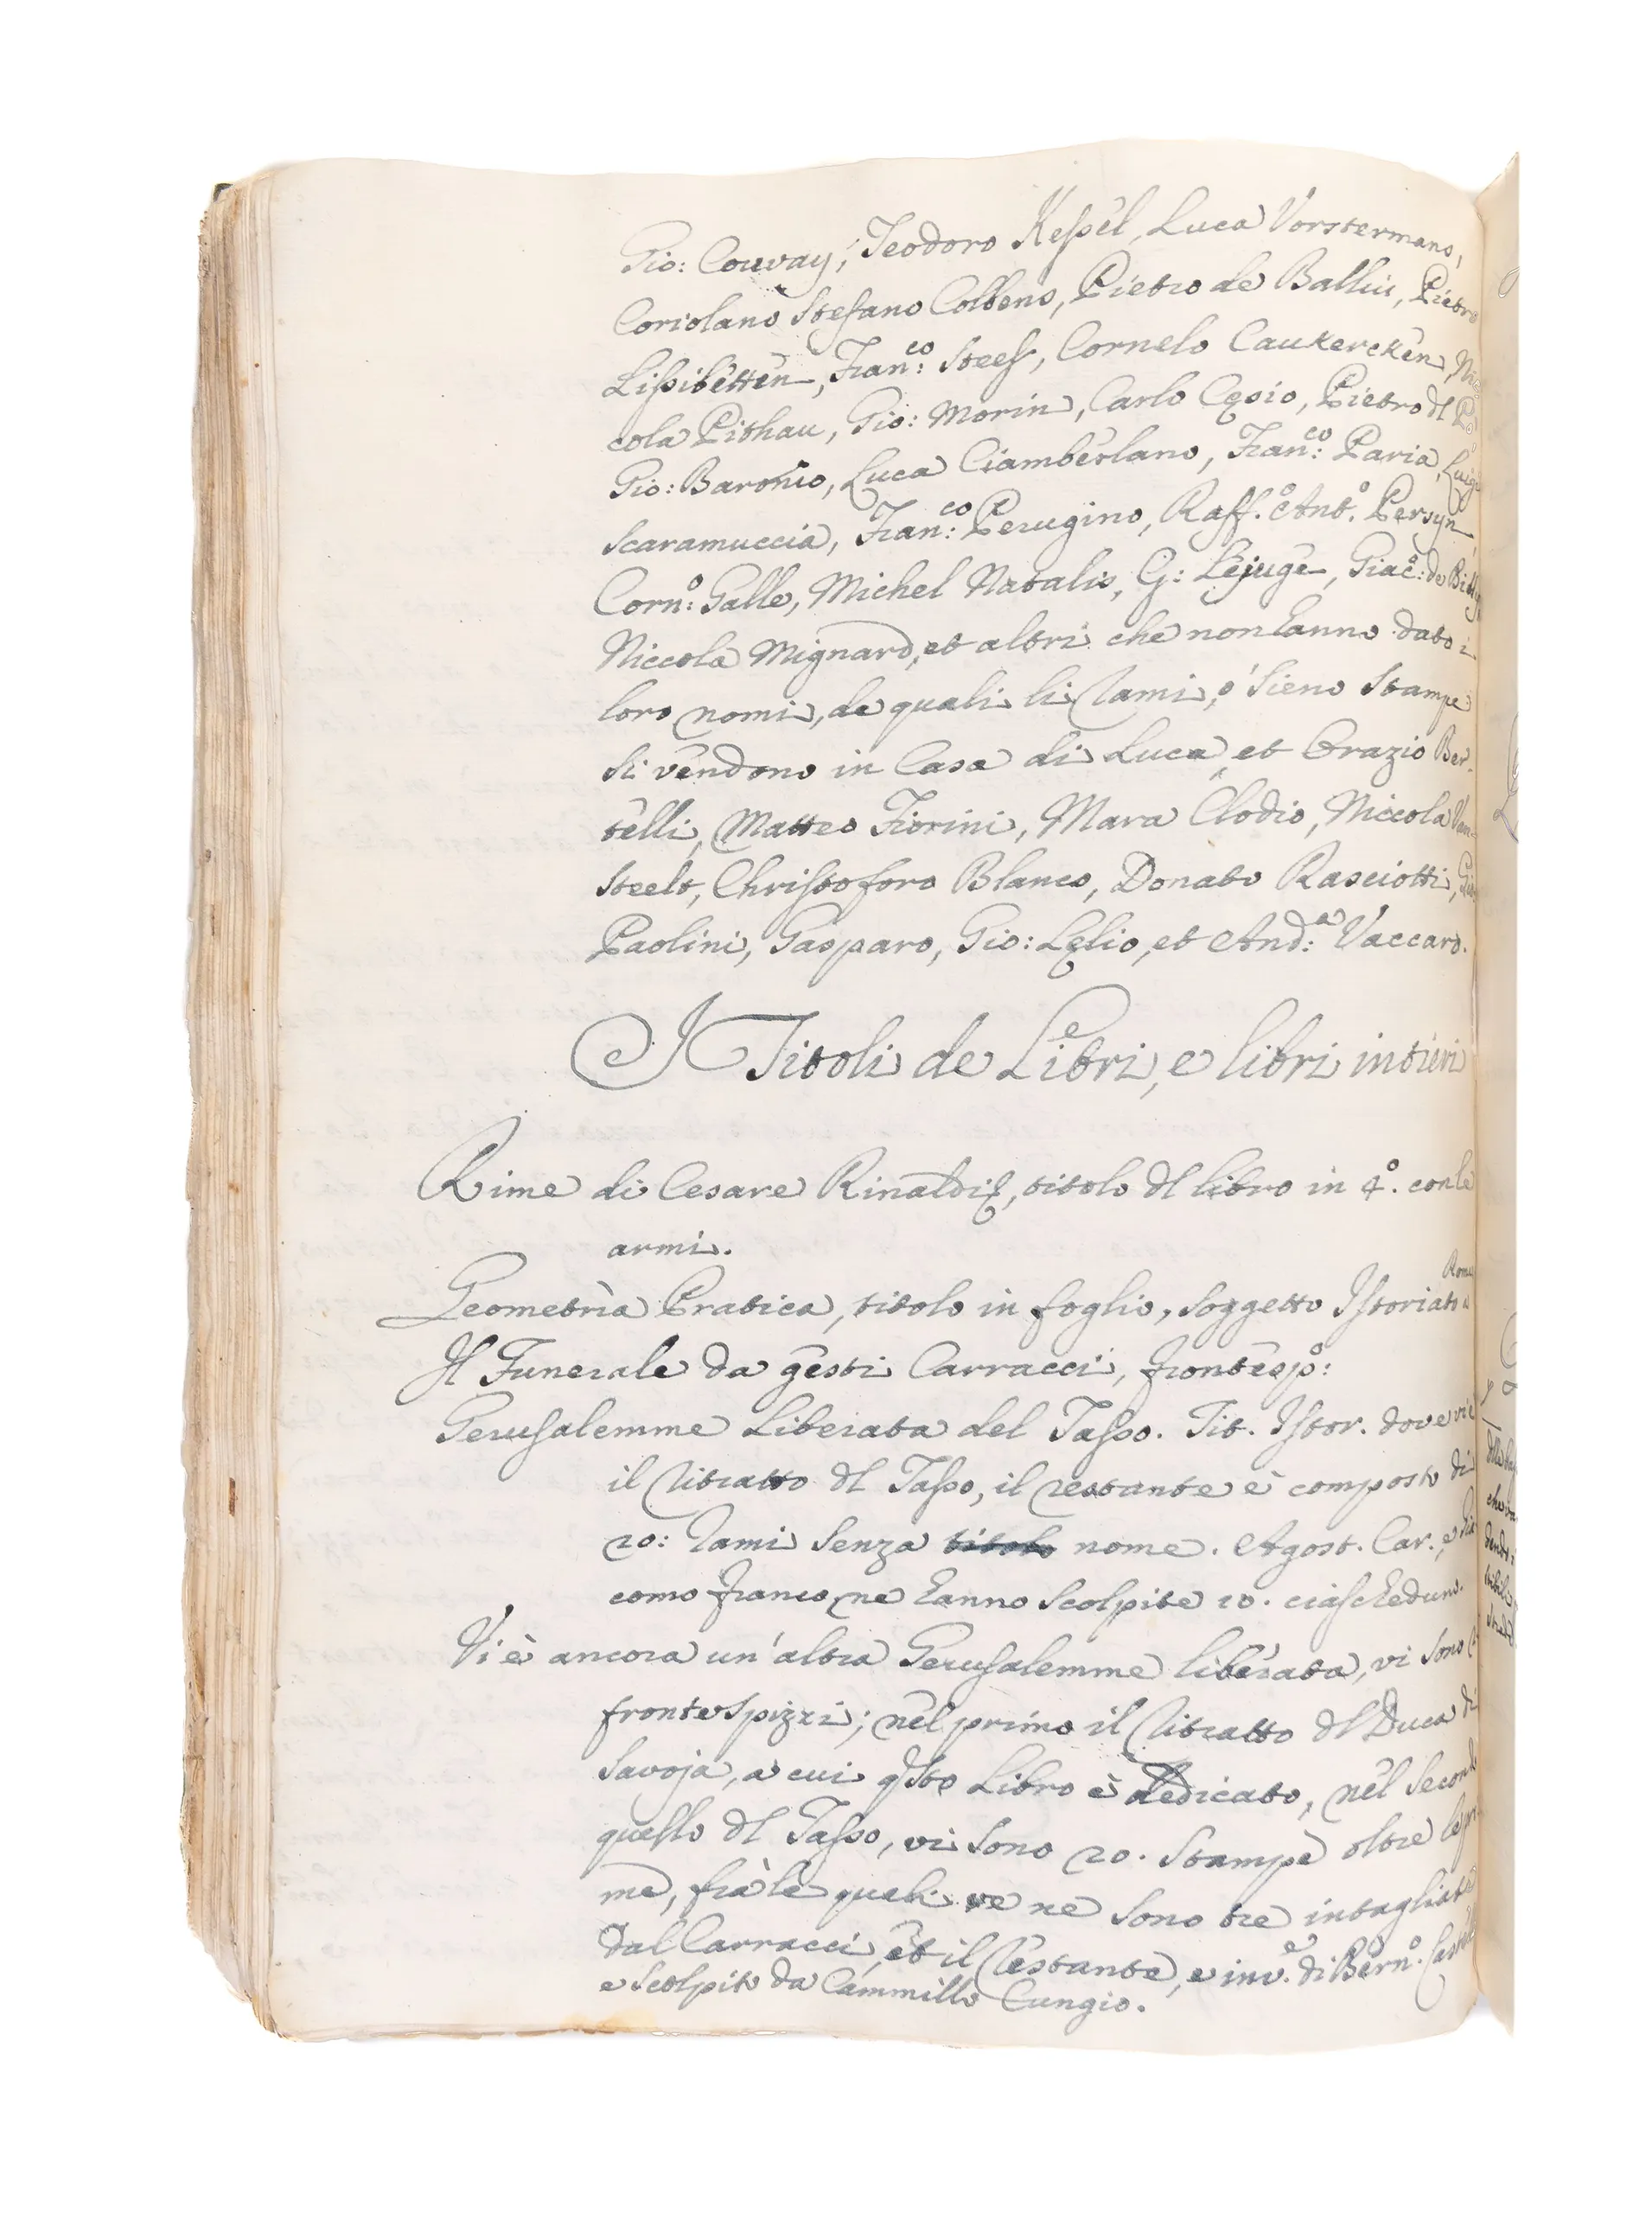 Gio: Couvay, Teodoro Keſsel, Luca Vorstermano,
Coriolano Stefano Colbens, Pietro de Balliu, Pietro
Liſsibetten, Fran:co Steeſs, Cornelo Caukercken, Ni
cola Pithau, Gio: Morin, Carlo Cesio, Pietro dl Po,
Gio: Baronio, Luca Ciamberlano, Fran:co Paria, Luigi
Scaramuccia, Fran:co Perugino, Raff.o Ant.o Persyn
Corn:o Galle, Michel Natalis, G: Lejuge, Giac:o de
Niccola Mignard, et altri che non hanno dato i
loro nomi, de quali li rami, ò sieno stampe
si vendono in Casa di Luca, et Orazio Ber-
telli, Matteo Fiorini, Mara Clodio, Niccola Van-
steelt, Christoforo Blanco, Donato Rasciotti,
Paolini, Gasparo, Gio: Lelio, et And:a Vaccaro.
I Titoli de Libri, e libri intieri
Rime di Cesare Rinaldi, titolo dl libro in 4.o con le
armi.
Geometria Pratica, titolo in foglio, soggetto Istoriato
Il Funerale da gesti Carracci, frontesp:o
Gerusalemme Liberata del Taſso. Tit. Istor. dove vi è
il ritratto dl Taſso, il restante è composto di
20: rami senza titolo nome. Agost. Car., e Gia
como Franco, ne hanno scolpite 10. ciascheduno.
Vi è ancora un'altra Gerusalemme liberata, vi sono
frontespizzi; nel primo il ritratto dl Duca di
Savoja, a cui qsto Libro è dedicato, nel second
quello dl Taſso, vi sono 20. stampe oltre le pr
me, frà le quali ve ne sono tre intagliate
dal Carracci, et il restante, e inv.e di Bern.o Castel
e scolpito da Cammillo Cungio.